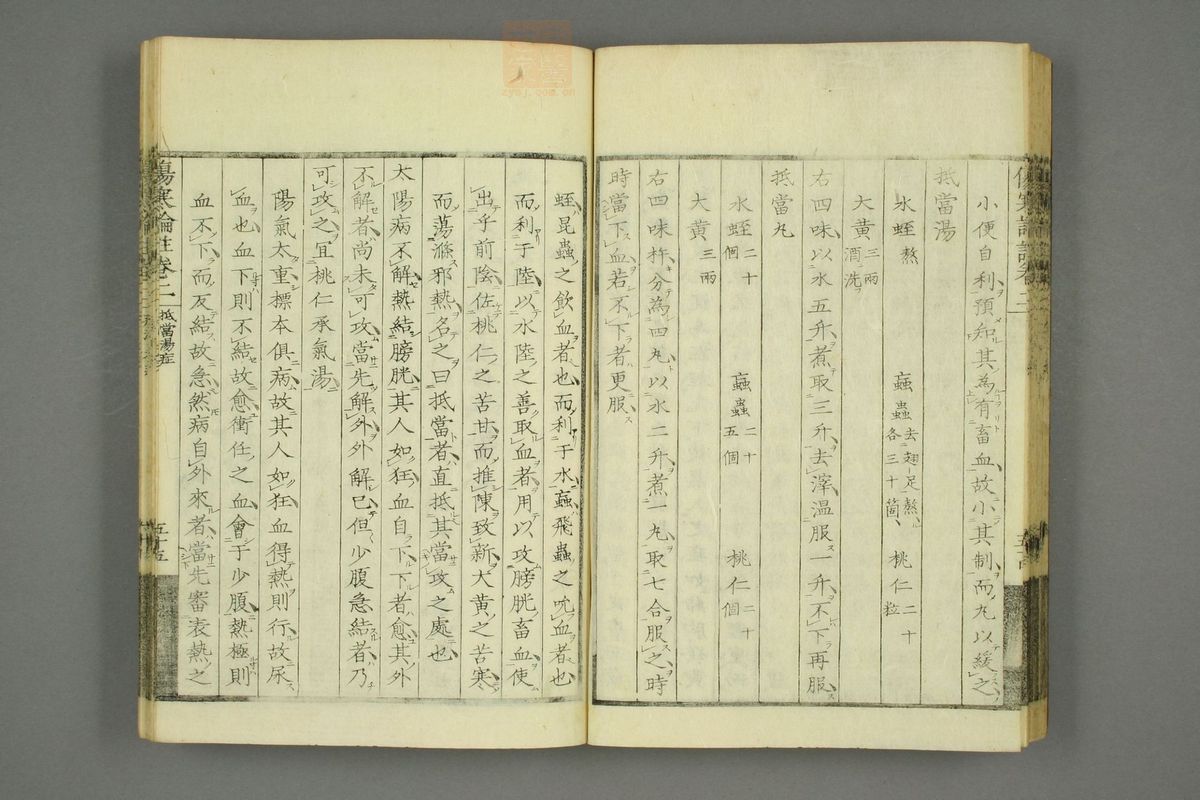 小便自利預知其為有畜血故小其制而丸以緩之
抵當湯
水蛭熬 蝱蟲去翅足熬各三十箇 桃仁二十粒
大黃三兩酒洗
右四味以水五升煮取三升去滓溫服一升不下再服
抵當丸
水蛭二十個 蝱蟲二十五個 桃仁二十個
大黃三兩
右四味杵分為四丸以水二升煮一丸取七合服之時
時當下血若不下者更服
蛭昆蟲之飲血者也而利于水蝱飛蟲之吮血者也
而利于陸以水陸之善取血者用以攻膀胱畜血使
出乎前陰佐桃仁之苦甘而推陳致新大黃之苦寒
而蕩滌邪熱名之曰抵當者直抵其當攻之處也
太陽病不解熱結膀胱其人如狂血自下下者愈其外
不解者尚未可攻當先解外外解已但少腹急結者乃
可攻之宜桃仁承氣湯
陽氣太重標本俱病故其人如狂血得熱則行故尿
血也血下則不結故愈衝任之血會于少腹熱極則
血不下而反結故急然病自外來者當先審表熱之
傷寒論註卷二 抵當湯症 五十五
zysj.com.cn